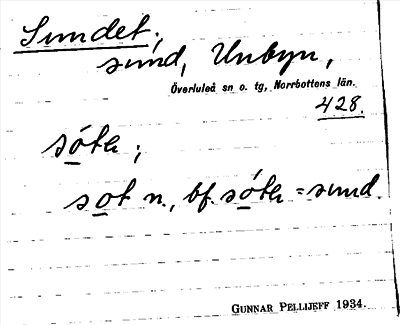 Sundet;
sund, Unbyn,
Överluleå sn o. tg, Norrbottens län.
428.
sótą;
sot n., bf. sótą = sund.
GUNNAR PELLIJEFF 1934.